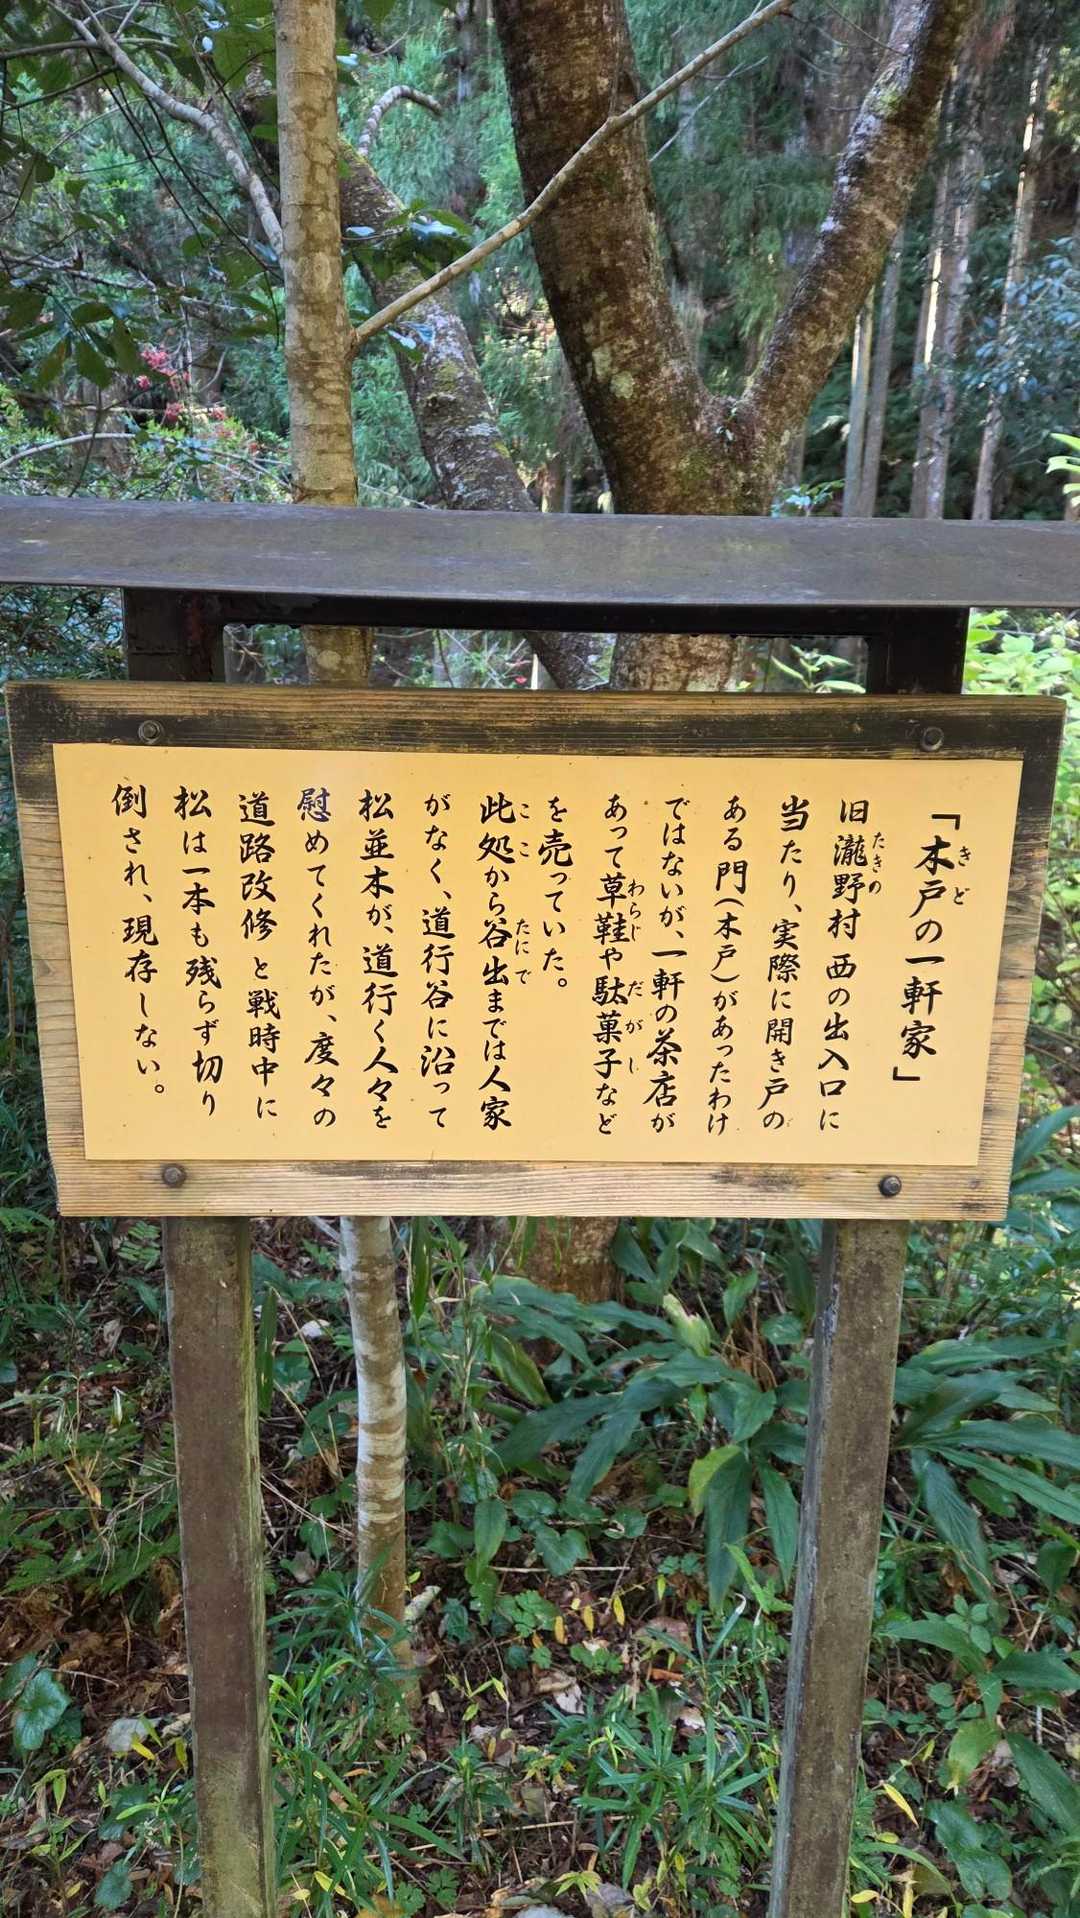 「木戸の一軒家」
きど
旧瀧野村 西の出入口に
たきの
当たり、実際に開き戸の
ある門(木戸)があったわけ
ではないが、一軒の茶店が
あって草鞋や駄菓子など
わらじ だがし
を売っていた。
此処から谷出までは人家
ここ たにで
がなく、道行谷に沿って
松並木が、道行く人々を
慰めてくれたが、度々の
道路改修と戦時中に
松は一本も残らず切り
倒され、現存しない。